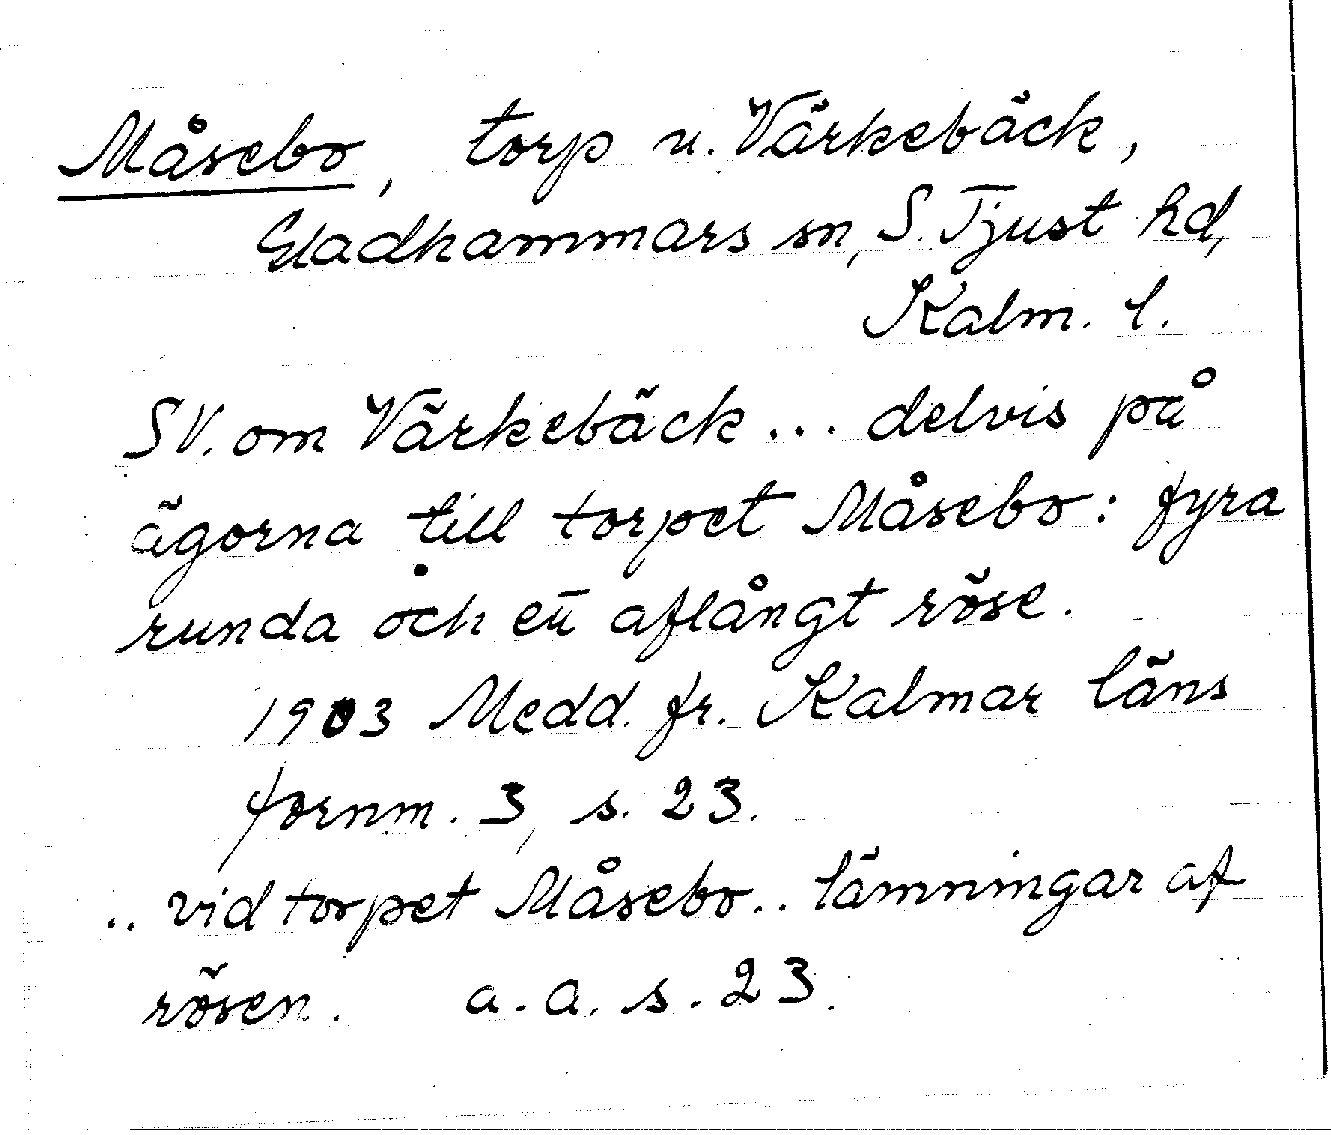 Måsebo, torp u. Värkebäck,
Gladhammars sn, S. Tjust hd,
Kalm. l.
SV. om Värkebäck... delvis på
ägorna till torpet Måsebo: fyra
runda och ett aflångt röse.
1903 Medd. fr. Kalmar läns
fornm. 3, s. 23.
.. vid torpet Måsebo.. lämningar af
rösen. a. a. s. 23.